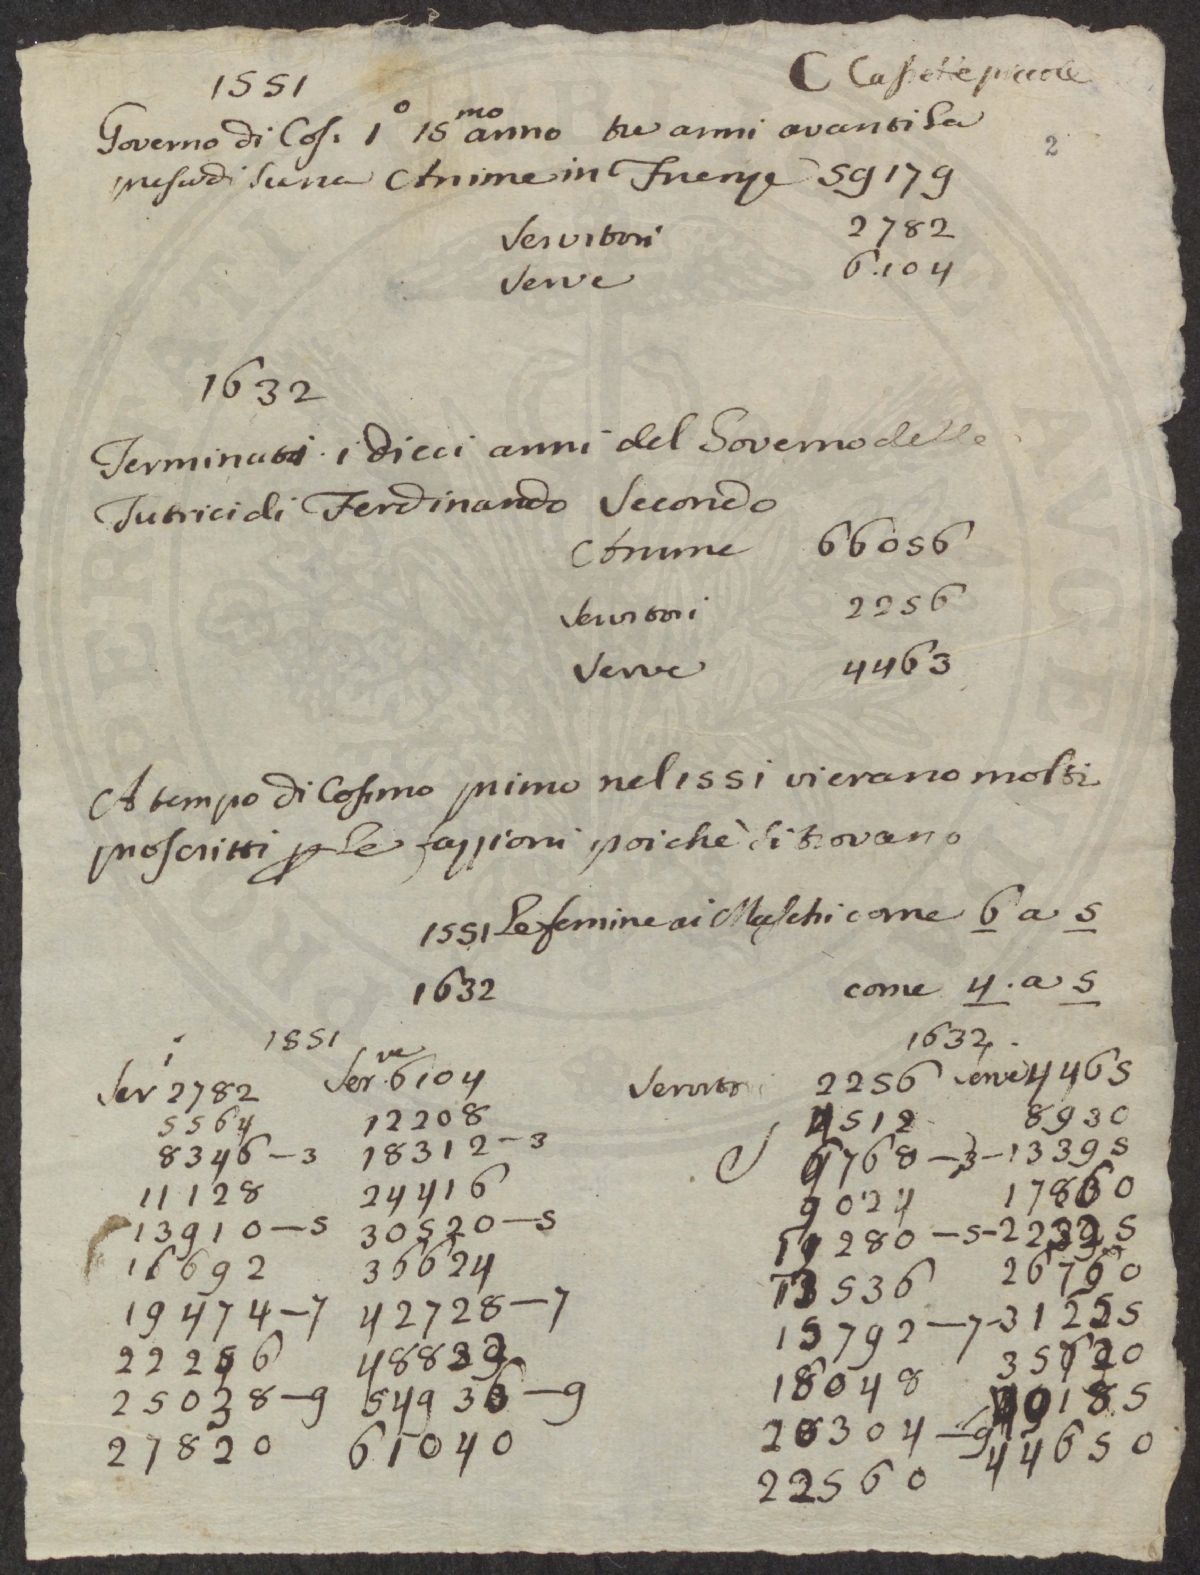 C Cassette piccole
2
1551
Governo di Cos. 1º 15mo anno tre anni avanti la
presa di Siena Anime in Firenze 59179
Servitori 2782
Serve 6104
1632
Terminati i Dieci anni del Governo delle
Tutrici di Ferdinando Secondo
Anime 66056
Servitori 2256
Serve 4463
A tempo di Cosimo primo nel 1551 vi erano molti
proscritti p le fazzioni poichè si trovano
1551 Le femine ai Maschi come 6 a 5
1632 come 4. a 5
1551 1632
Seri 2782 Serve 6104 Servitori 2256 Serve 4465
5564 12208 4512 8930
8346-3 18312-3 6768-3-13395
11128 24416 9024 17860
13910-5 30520-5 11280-5-22325
16692 36624 13536 26790
19474-7 42728-7 15792-7-31255
22256 48832 18048 35720
25038-9 54936-9 20304-9 40185
27820 61040 22560 44650